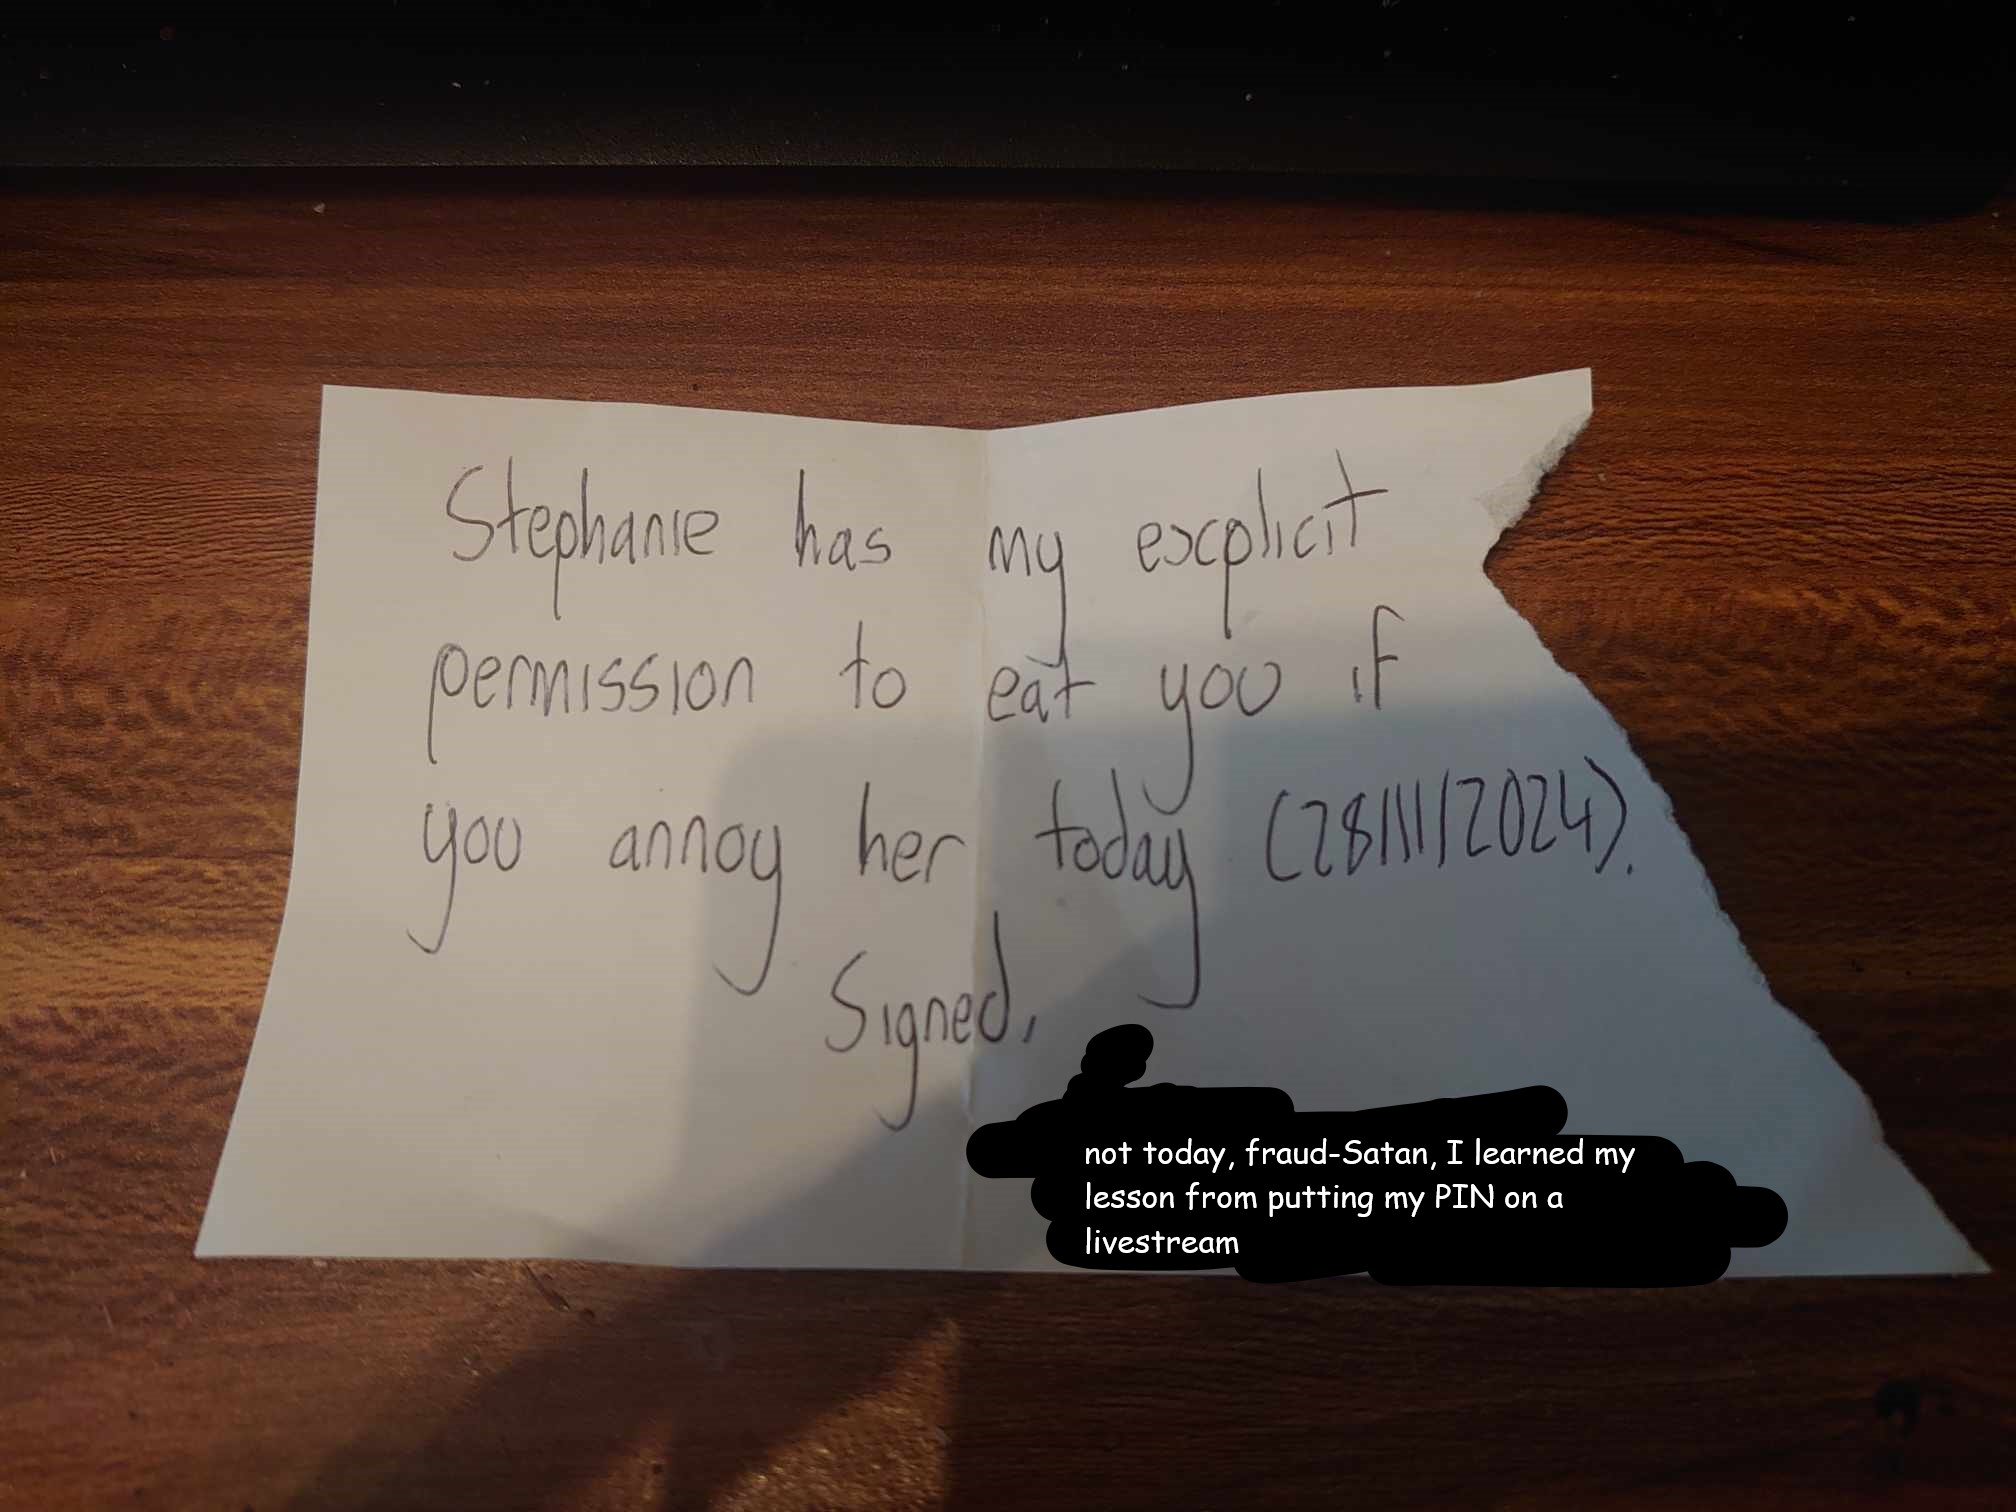 Stephanie has my explicit
permission to eat you if
you annoy her today (28/11/2024).
Signed,
not today, fraud-Satan, I learned my
lesson from putting my PIN on a
livestream